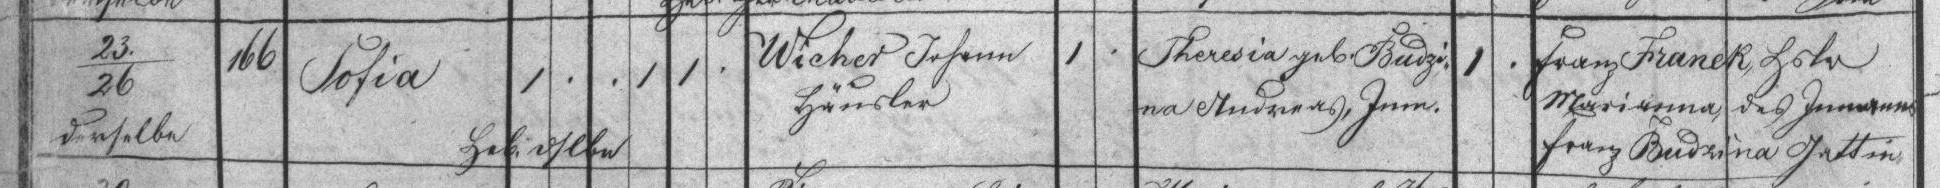 23.
26
derselbe
166
Sofia
1 . . 1 1 .
Heb. dslbe
Wicher Johann
Häusler
1 .
Theresia geb. Budzi-
na Andreas, Inm.
1 .
Franz Franek, Hslr
Marianna, des Inmanns
Franz Budzina Gattin